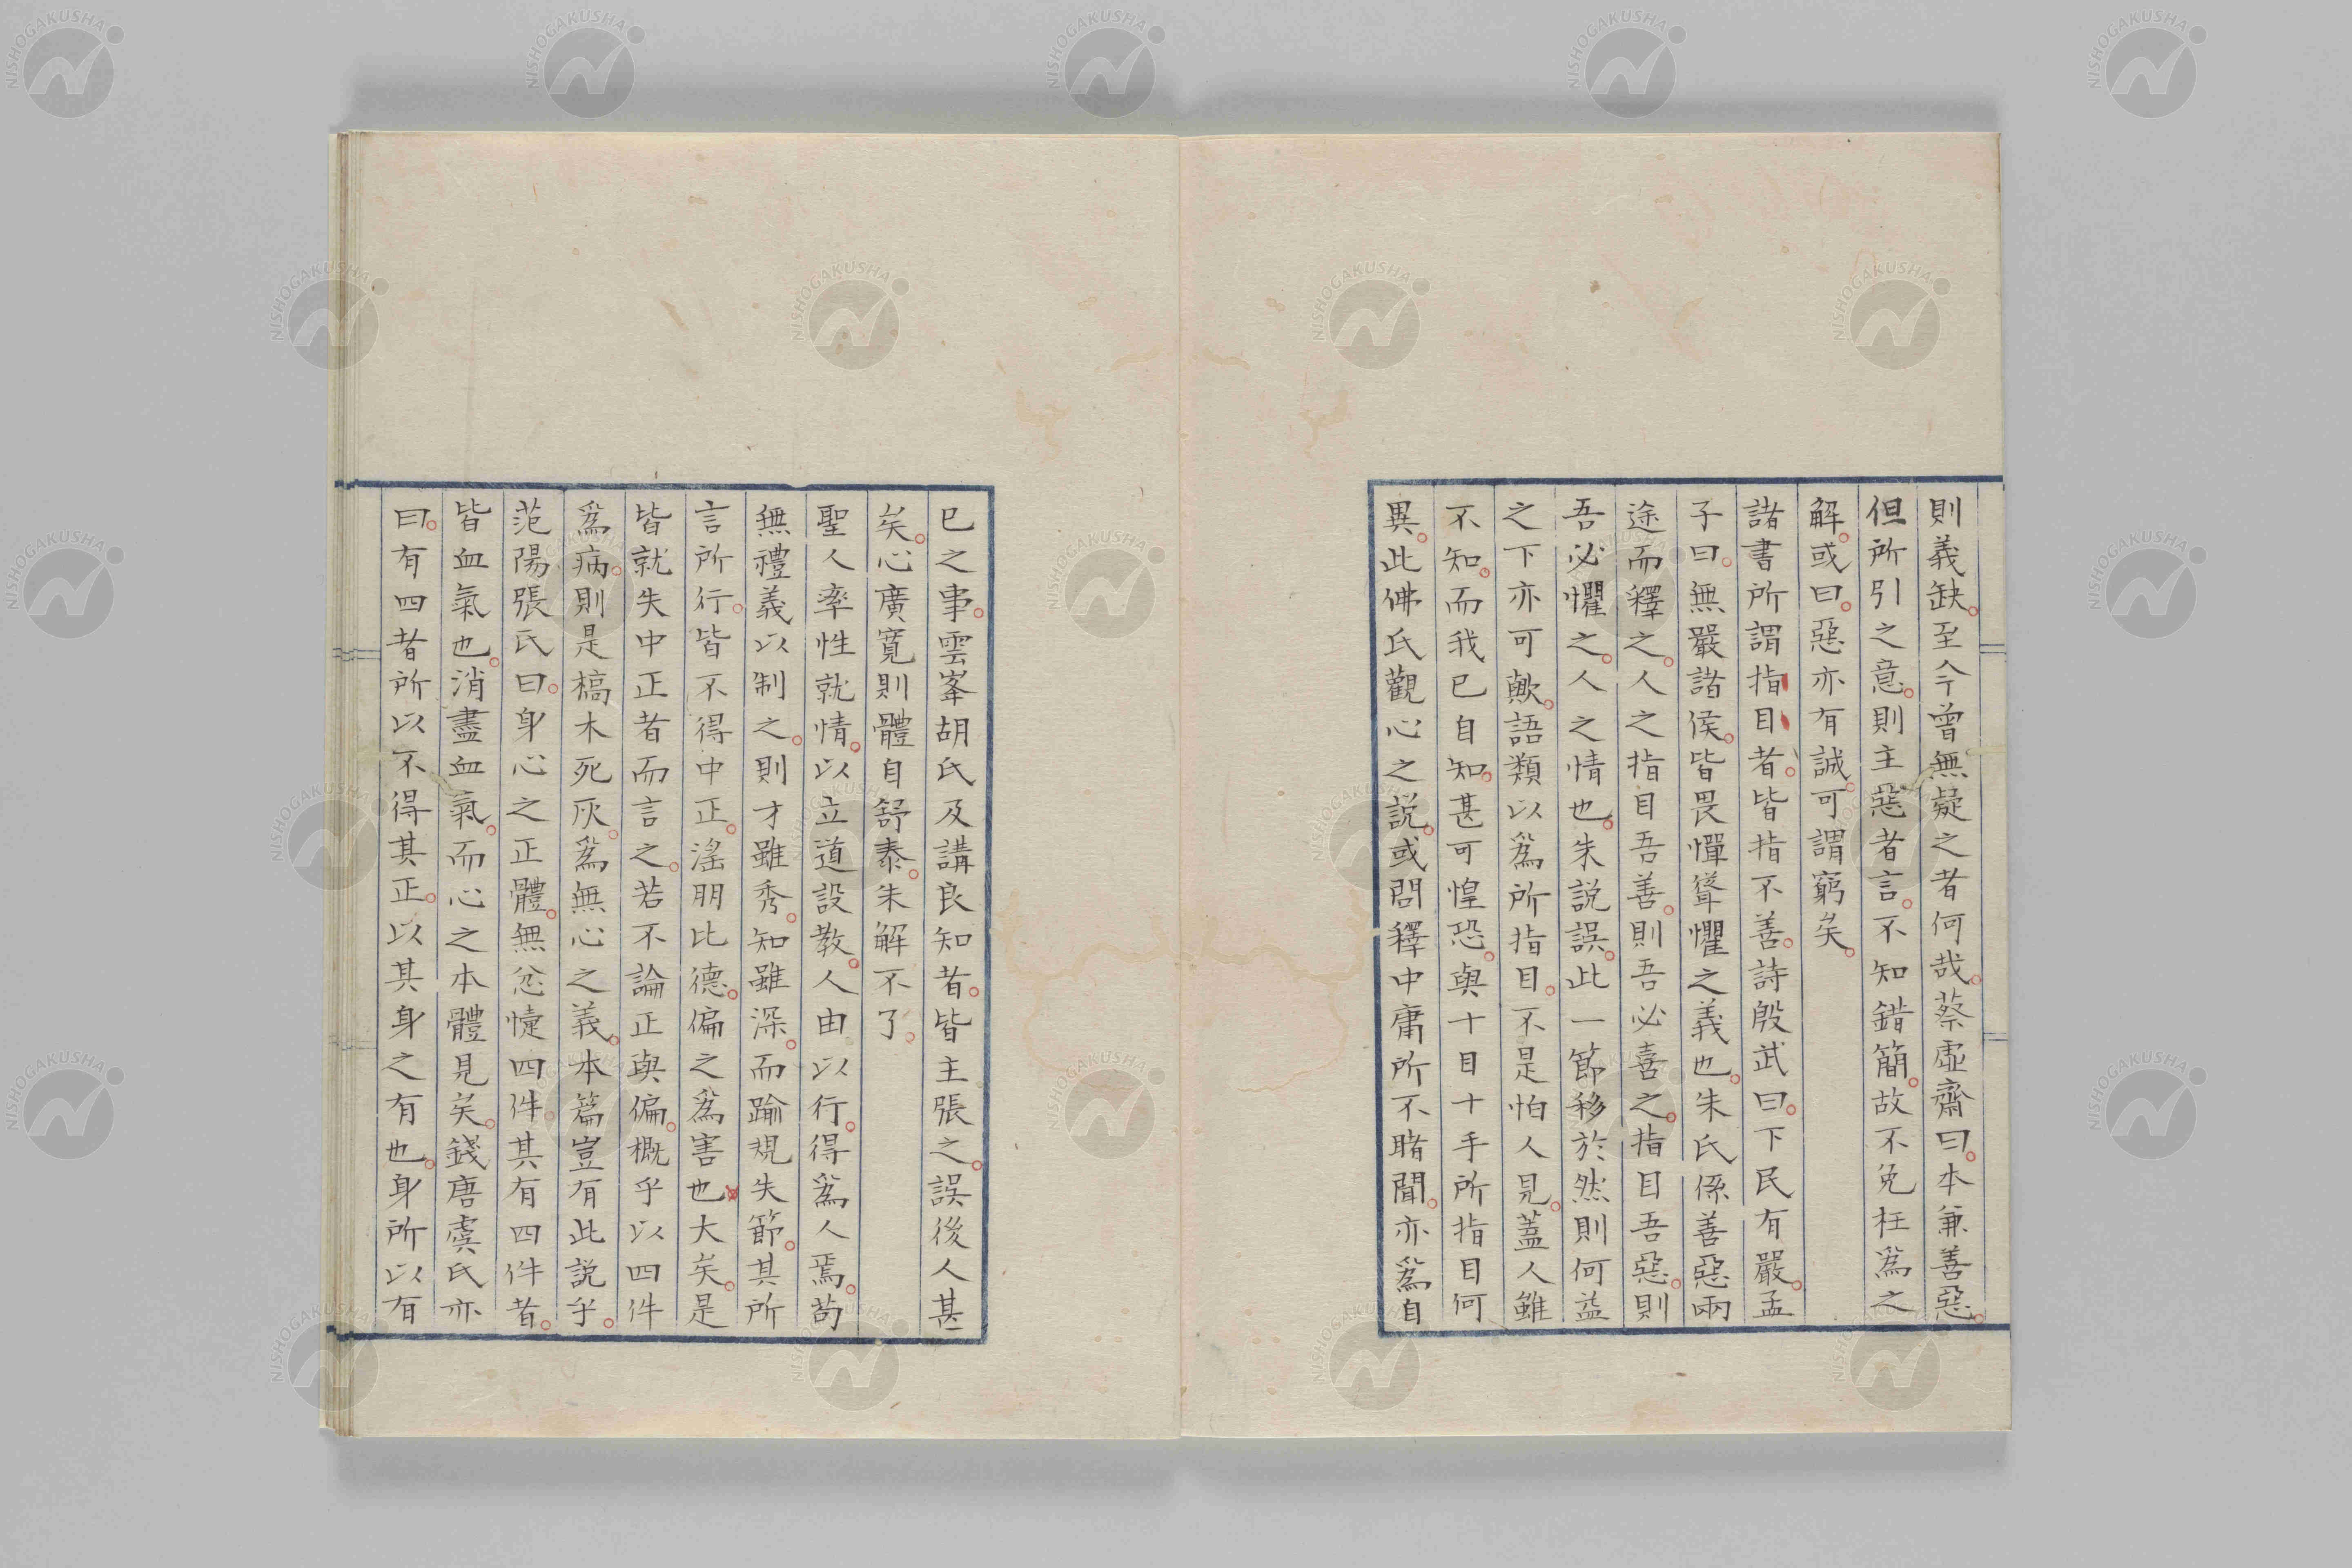 則義缺。至今曾無疑之者何哉。蔡虛齋曰。本兼善惡。
但所引之意。則主惡者言。不知錯簡。故不免枉爲之
解。或曰。惡亦有誠。可謂窮矣。
諸書所謂指目者。皆指不善。詩殷武曰。下民有嚴。孟
子曰。無嚴諸侯。皆畏憚聳懼之義也。朱氏係善惡兩
途而釋之。人之指目吾善。則吾必喜之。指目吾惡。則
吾必懼之。人之情也。朱説誤。此一節移於然則何益
之下亦可歟。語類以爲所指目。不是怕人見。蓋人雖
不知。而我已自知。甚可惶恐。與十目十手所指目何
異。此佛氏觀心之説。或問釋中庸所不睹聞。亦爲自
已之事。雲峯胡氏及講良知者。皆主張之。誤後人甚
矣。心廣寬則體自舒泰。朱解不了。
聖人率性就情。以立道設教。人由以行。得爲人焉。苟
無禮義以制之。則才雖秀。知雖深。而踰規失節。其所
言所行。皆不得中正。滛朋比德。偏之爲害也大矣。是
皆就失中正者而言之。若不論正與偏。概乎以四件
爲病。則是槁木死灰。爲無心之義。本篇豈有此説乎。
范陽張氏曰。身心之正體。無忿懥四件。其有四件者。
皆血氣也。消盡血氣。而心之本體見矣。錢唐虞氏亦
曰。有四者所以不得其正。以其身之有也。身所以有
NISHOGAKUSHA